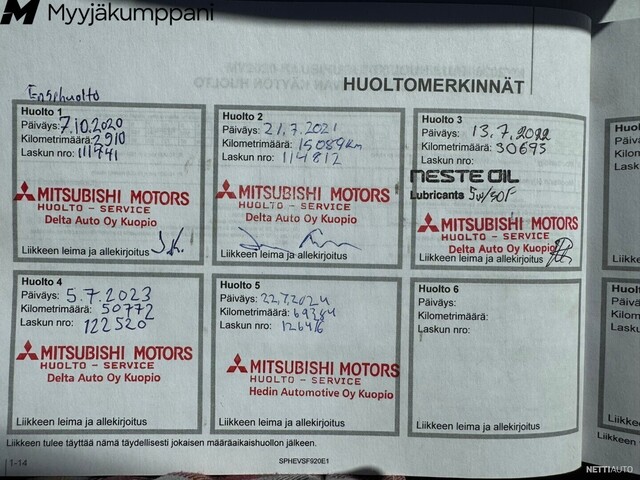 Myyjäkumppani
HUOLTOMERKINNÄT
Ensihuolto
Huolto 1
Päiväys: 7.10.2020
Kilometrimäärä: 2910
Laskun nro: 111941
MITSUBISHI MOTORS
HUOLTO - SERVICE
Delta Auto Oy Kuopio
Liikkeen leima ja allekirjoitus
Huolto 2
Päiväys: 21.7.2021
Kilometrimäärä: 15089km
Laskun nro: 114812
MITSUBISHI MOTORS
HUOLTO - SERVICE
Delta Auto Oy Kuopio
Liikkeen leima ja allekirjoitus
Huolto 3
Päiväys: 13.7.2022
Kilometrimäärä: 30675
Laskun nro:
NESTE OIL
Lubricants 5w/30F
MITSUBISHI MOTORS
HUOLTO - SERVICE
Delta Auto Oy Kuopio
Liikkeen leima ja allekirjoitus
Huolto 4
Päiväys: 5.7.2023
Kilometrimäärä: 50772
Laskun nro: 122520
MITSUBISHI MOTORS
HUOLTO - SERVICE
Delta Auto Oy Kuopio
Liikkeen leima ja allekirjoitus
Huolto 5
Päiväys: 22.7.2024
Kilometrimäärä: 69384
Laskun nro: 126416
MITSUBISHI MOTORS
HUOLTO - SERVICE
Hedin Automotive Oy Kuopio
Liikkeen leima ja allekirjoitus
Huolto 6
Päiväys:
Kilometrimäärä:
Laskun nro:
Liikkeen leima ja allekirjoitus
Liikkeen tulee täyttää nämä täydellisesti jokaisen määräaikaishuollon jälkeen.
1-14
SPHEVSF920E1
NETTIAUTO